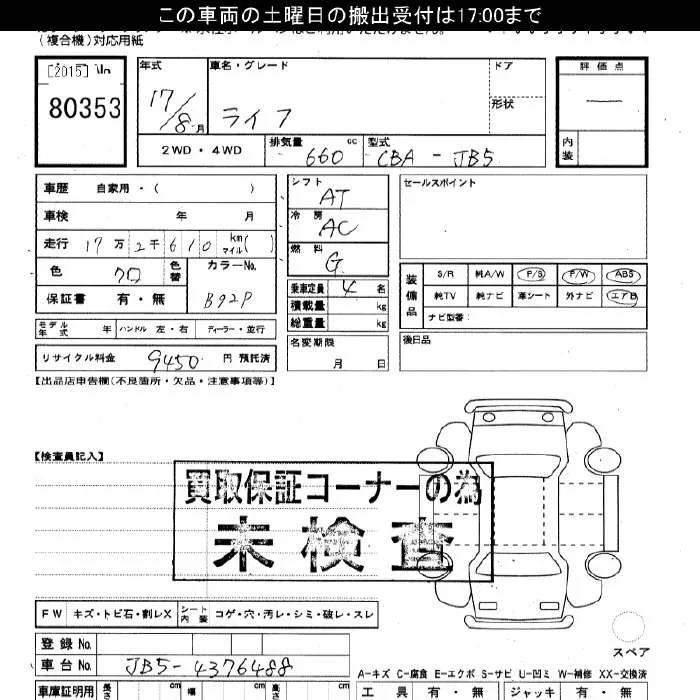 この車両の土曜日の搬出受付は17:00まで
(複合機)対応用紙
[2015]
80353
年式
17/8月
車名・グレード
ライフ
ドア
形状
評価点
―
内装
2WD・4WD
排気量
660 cc
型式
CBA - JB5
車歴 自家用・( )
車検 年 月
走行 17万2千610 km マイル( )
色 クロ 色替
カラーNo.
B92P
保証書 有・無
モデル年式 年 ハンドル 左・右 ディーラー・並行
リサイクル料金 9450 円 預託済
シフト
AT
冷房
AC
燃料
G
乗車定員 4 名
積載量 kg
総重量 kg
名変期限
月 日
セールスポイント
装備品
S/R 純A/W P/S P/W ABS
純TV 純ナビ 革シート 外ナビ エアB
ナビ型番:
後日品
【出品店申告欄(不良箇所・欠品・注意事項等)】
【検査員記入】
買取保証コーナーの為
未検査
FW キズ・トビ石・割レX シート内装 コゲ・穴・汚レ・シミ・破レ・スレ
登録No.
車台No. JB5-4376488
スペア
A-キズ C-腐食 E-エクボ S-サビ U-凹ミ W-補修 XX-交換済
車庫証明用 長さ cm 幅 cm 高さ cm
工具 有・無 ジャッキ 有・無